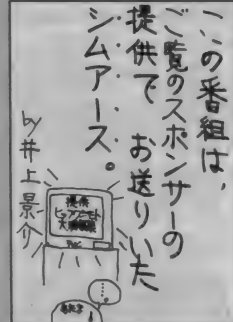 この番組は、
ご覧のスポンサーの
提供で お送りいた
シムアース。
by 井上景介
提供